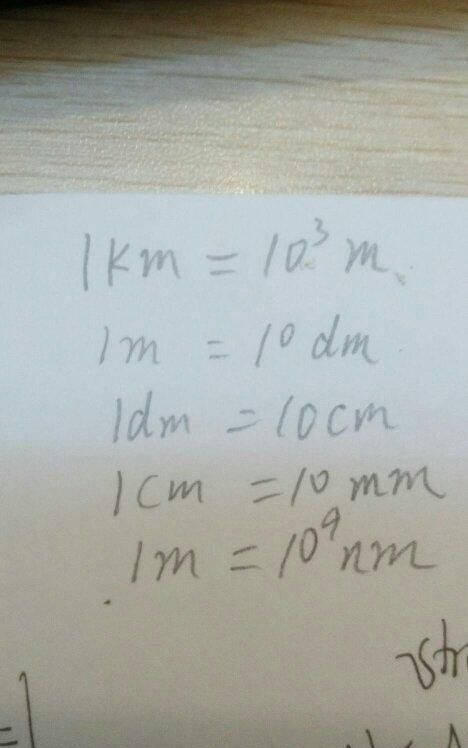 1km = 10³ m
1m = 10 dm
1dm = 10cm
1cm = 10 mm
1m = 10⁹ nm
=1